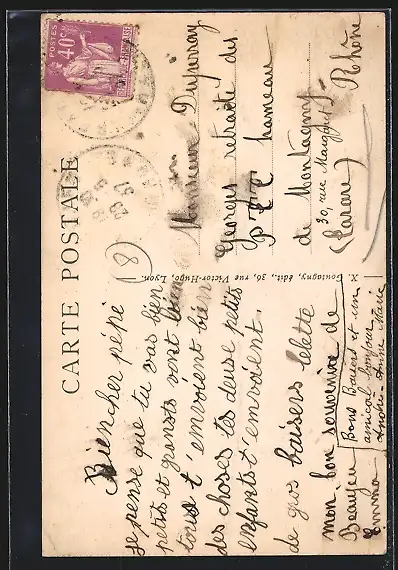 CARTE POSTALE
POSTES
40c
Bien cher pépé
je pense que tu vas bien
petits et grands vont bien
tous t'envoient bien
des choses tes deuse petits
enfants t'envoient
de gros baisers
mon bon souvenire de
Beaujeu
Emma
Bons Baisers et un
amical bonjour
Anne Marie
X. Goutagny, édit., 36, rue Victor-Hugo, Lyon.
8
Monsieur
Georges retraité des
PTT hameau
de Montagny
30, rue
(Tarare) Rhône